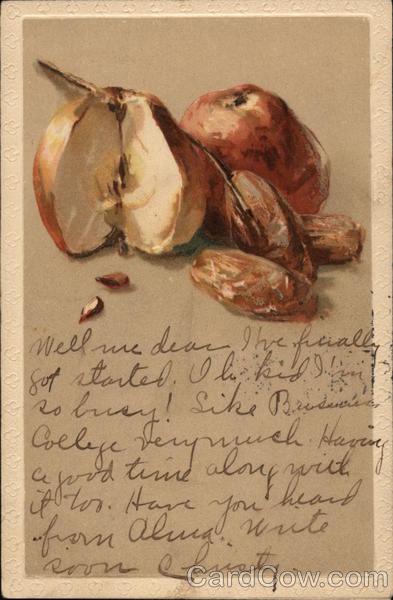 Well me dear I've finally
got started. Oh kid I'm
so busy! Like
College very much. Having
a good time along with
it too. Have you heard
from Alma. Write
soon
CardCow.com